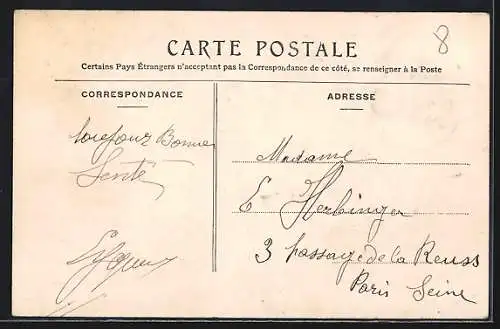 8
CARTE POSTALE
Certains Pays Étrangers n'acceptant pas la Correspondance de ce côté, se renseigner à la Poste
CORRESPONDANCE
ADRESSE
toujour Bonne
Senté
Madame
E Herbinger
3 passage de la Reuss
Paris Seine